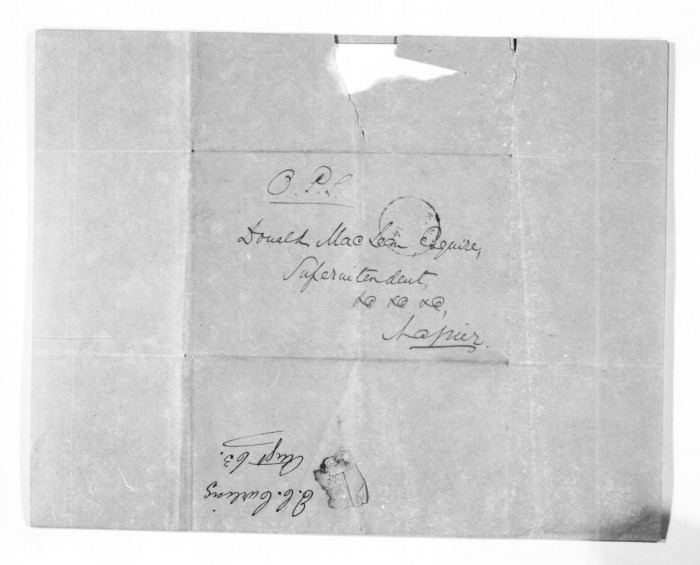 O. P. S.
Donald MacLean Esquire,
Superintendent,
&c &c &c,
Napier.
Augt 63.